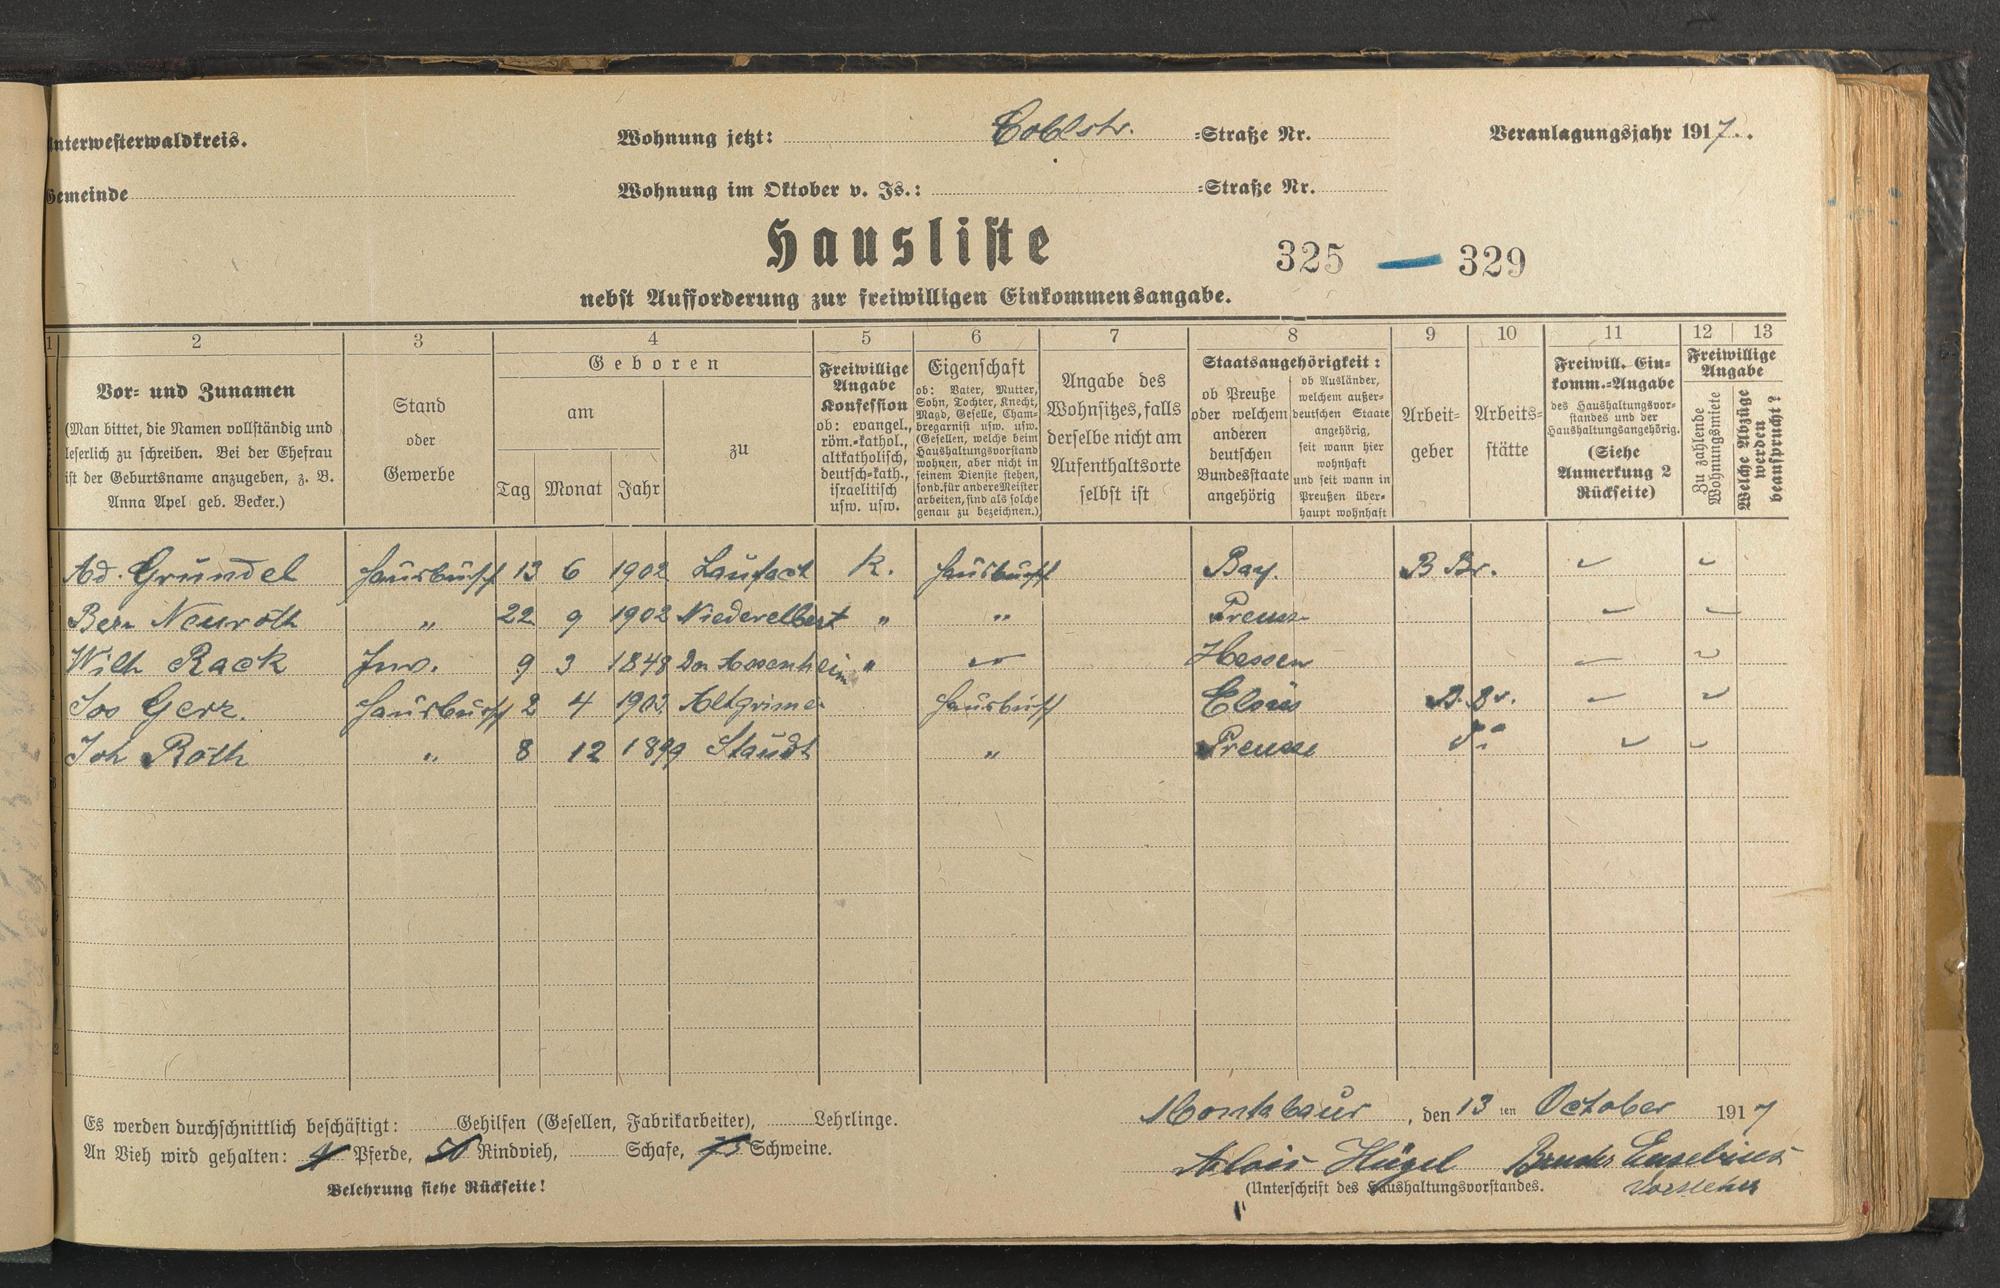 Unterwesterwaldkreis. Wohnung jetzt: Coblstr. -Straße Nr. Veranlagungsjahr 1917.
Gemeinde Wohnung im Oktober v. Js.: -Straße Nr.
Hausliste
325 — 329
nebst Aufforderung zur freiwilligen Einkommensangabe.
1 2 3 4 5 6 7 8 9 10 11 12 13
Vor- und Zunamen
(Man bittet, die Namen vollständig und
leserlich zu schreiben. Bei der Ehefrau
ist der Geburtsname anzugeben, z. B.
Anna Apel geb. Becker.)
Stand
oder
Gewerbe
Geboren
am
Tag Monat Jahr
zu
Freiwillige
Angabe
Konfession
ob: evangel.,
röm.-kathol.,
altkatholisch,
deutsch-kath.,
israelitisch
usw. usw.
Eigenschaft
ob: Vater, Mutter,
Sohn, Tochter, Knecht,
Magd, Geselle, Cham-
bregarnist usw. usw.
(Gesellen, welche beim
Haushaltungsvorstand
wohnen, aber nicht in
seinem Dienste stehen,
sond. für andere Meister
arbeiten, sind als solche
genau zu bezeichnen.)
Angabe des
Wohnsitzes, falls
derselbe nicht am
Aufenthaltsorte
selbst ist
Staatsangehörigkeit:
ob Preuße
oder welchem
anderen
deutschen
Bundesstaate
angehörig
ob Ausländer,
welchem außer-
deutschen Staate
angehörig,
seit wann hier
wohnhaft
und seit wann in
Preußen über-
haupt wohnhaft
Arbeit-
geber
Arbeits-
stätte
Freiwill. Ein-
komm.-Angabe
des Haushaltungsvor-
standes und der
Haushaltungsangehörig.
(Siehe
Anmerkung 2
Rückseite)
Freiwillige
Angabe
Zu zahlende
Wohnungsmiete
Welche Abzüge
werden
beansprucht?
Ad. Gründel Hausbursch 13 6 1902 Laufach K. Hausbursch Bay. B Br.
Bern Neuroth " 22 9 1902 Niederelbert " " Preusse
Wilh Rack Inv. 9 3 1848 " Hessen
Jos Gerz. Hausbursch 2 4 1902 Hausbursch B. Br.
Joh Roth " 8 12 1899 Staudt " Preusse
Es werden durchschnittlich beschäftigt: Gehilfen (Gesellen, Fabrikarbeiter), Lehrlinge.
An Vieh wird gehalten: 4 Pferde, 50 Rindvieh, Schafe, 75 Schweine.
Belehrung siehe Rückseite!
Montabaur, den 13 ten October 1917
Alois Hügel Bruder Eusebius
Vorsteher
(Unterschrift des Haushaltungsvorstandes.